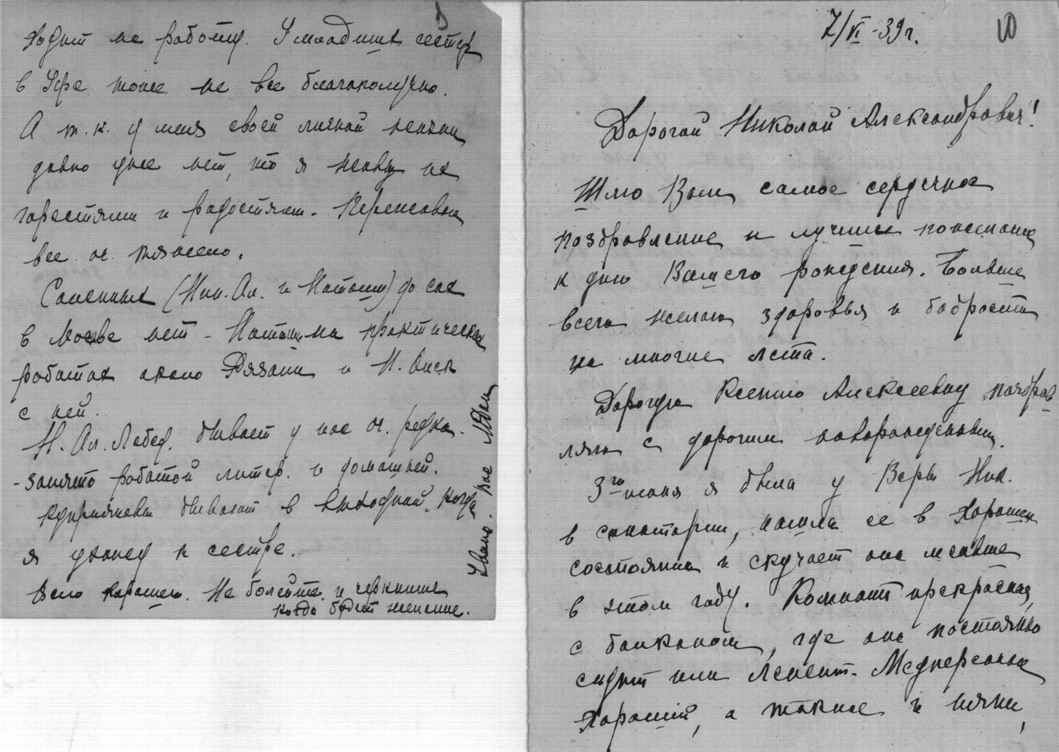 ходит на работу. У младших сестер
в Уфе тоже не все благополучно.
А т.к. у меня своей личной жизни
давно уже нет, то я живу их
горестями и радостями. Переписывать
все оч. тяжело.
Саленных (Ник. Ал. и Наташи) до сих
в Москве нет - Наташа на практических
работах около Рязани и Н. Ал.
с ней.
Н. Ал. Лебед. бывает у нас оч. редко.
- занята работой литер. и домашней.
Куприяновы бывают в выходной, когда
я ухожу к сестре.
Всего хорошего. Не болейте и черкните
когда будет желание.
Ваша
3
7/VI-39 г.
10
Дорогой Николай Александрович!
Шлю Вам самое сердечное
поздравление и лучшие пожелания
к дню Вашего рождения. Больше
всего желаю здоровья и бодрости
на многие лета.
Дорогую Ксению Алексеевну поздрав
ляю с дорогим новорожденным.
3го июня я была у Веры Ник.
в санатории, нашла ее в хорошем
состоянии и скучает она меньше
в этом году. Комната прекрасная,
с балконом, где она постоянно
сидит или лежит. Медперсонал
хороший, а также и няни,